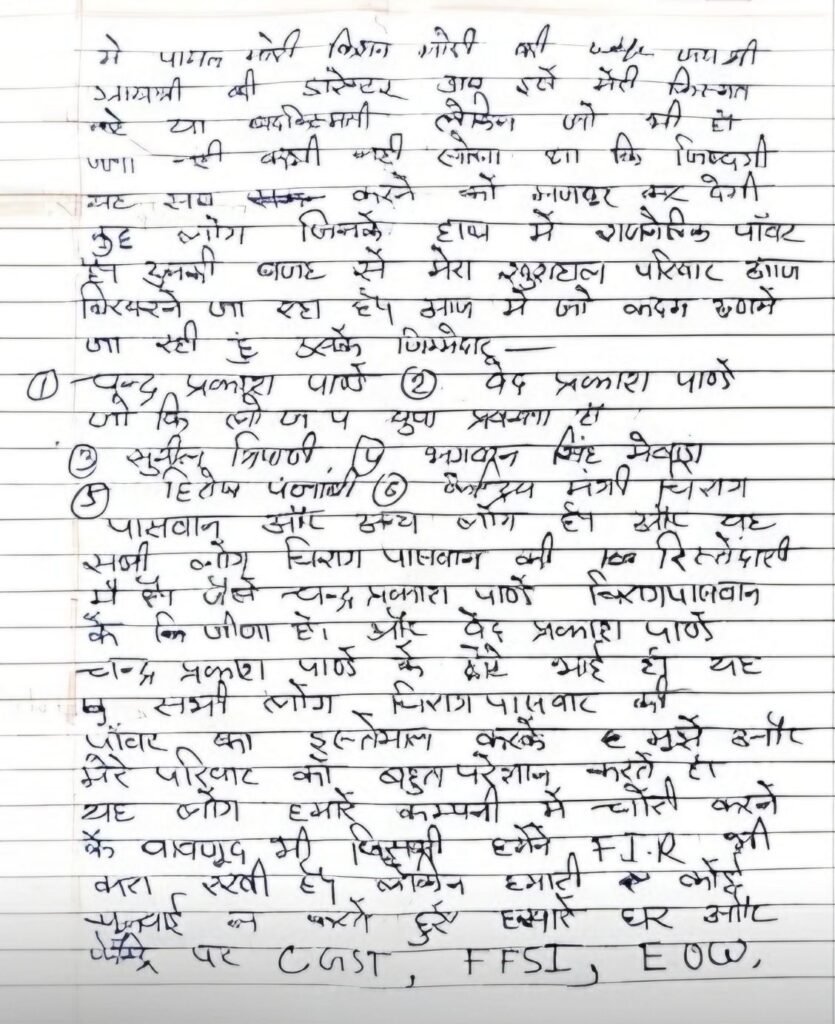 मे पायल मोदी किशन मोदी की wife जयश्री
गायत्री की डारेक्टर आप इसे मेरी किस्मत
कहे या बदकिस्मती लेकिन जो भी हो
कभी नही सोचा था कि जिन्दगी
यह सब करने को मजबूर कर देगी
कुछ लोग जिनके हाथ में राजनैतिक पॉवर
है। इनकी बजह से मेरा खुशहाल परिवार आज
बिखरने जा रहा है। आज में जो कदम उठाने
जा रही हुं उसके जिम्मेदार —
① चन्द्र प्रकाश पाण्डे ② वेद प्रकाश पाण्डे
जो कि लो ज प युवा प्रवक्ता है।
③ सुनील त्रिपाठी ④ भगवान सिंह मेवाड़ा
⑤ हितेष पंजाबी ⑥ केन्द्रिय मंत्री चिराग
पासवान और अन्य लोग है। और यह
सभी लोग चिराग पासवान की रिस्तेदारी
मै है। जैसे चन्द्र प्रकाश पाण्डे चिराग पासवान
के जीजा है। और वेद प्रकाश पाण्डे
चन्द्र प्रकाश पाण्डे के छोटे भाई है। यह
सभी लोग चिराग पासवान की
पॉवर का इस्तेमाल करके मुझे और
मेरे परिवार को बहुत परेशान करते है।
यह लोग हमारे कम्पनी में चोरी करने
के वावजूद भी जिसकी हमने F.I.R भी
करा रखी है। लेकिन हमारी कोई
सुनवाई न करते हुऐ हमारे घर और
पर CGST, FFSI, EOW,